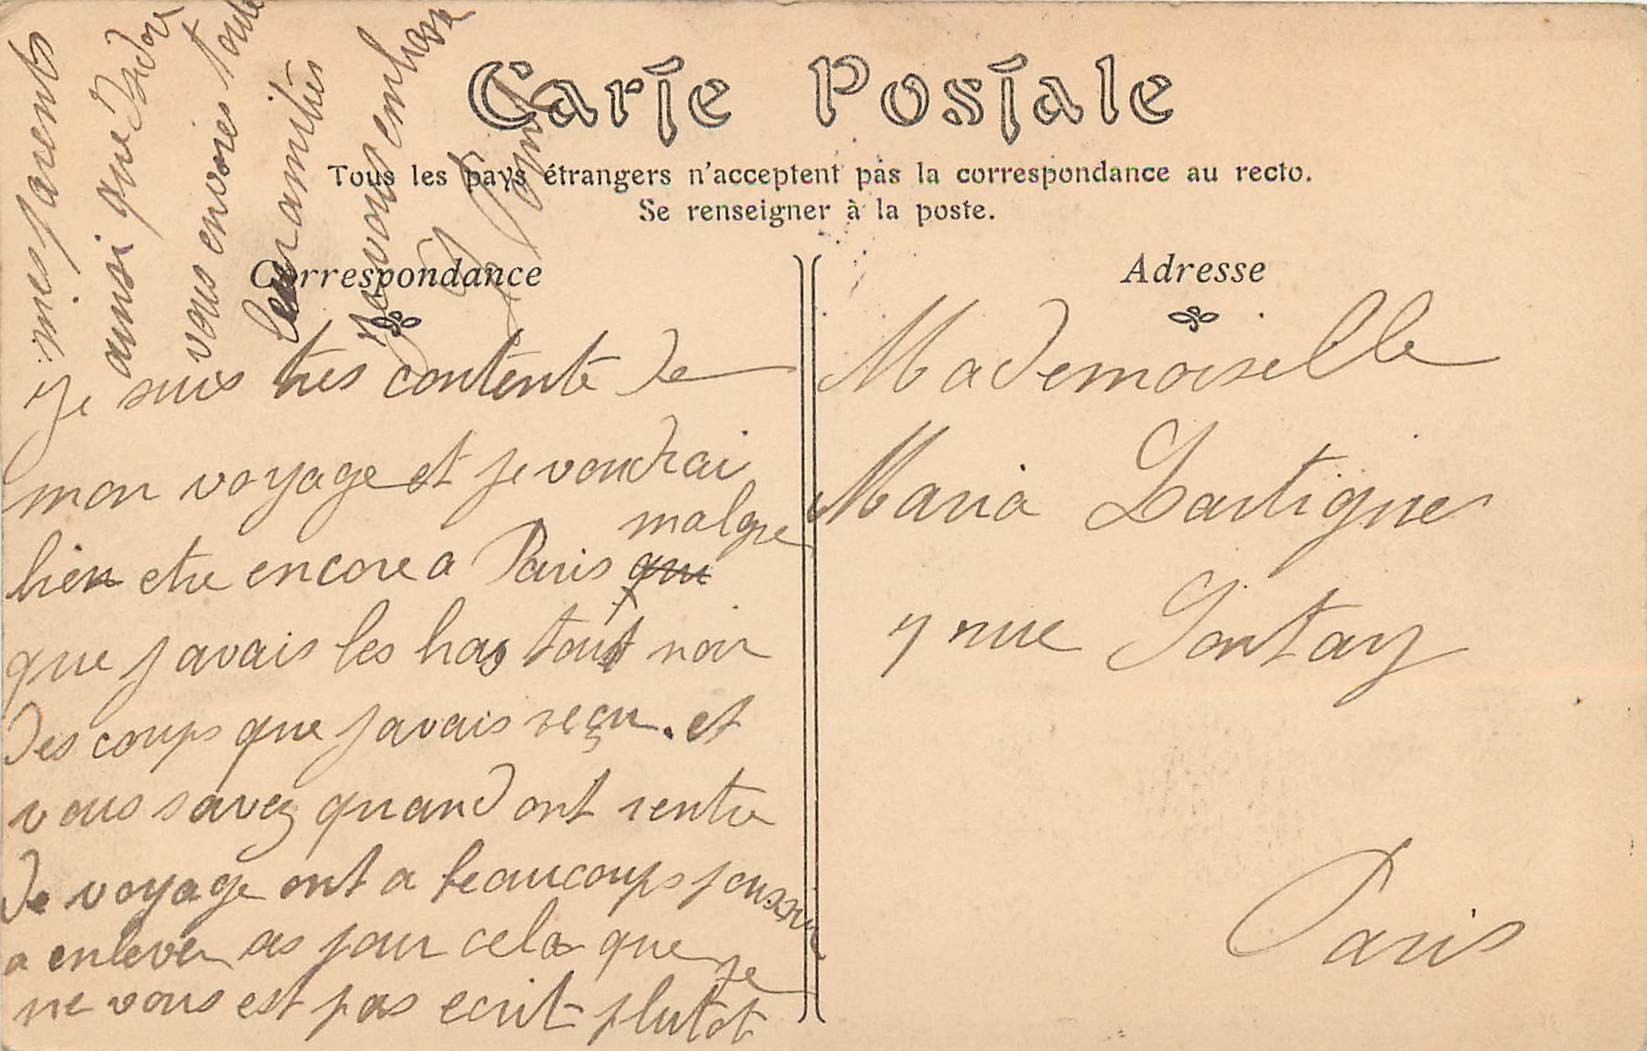 Carte Postale
Tous les pays étrangers n'acceptent pas la correspondance au recto.
Se renseigner à la poste.
Correspondance
Je suis tres contente de
mon voyage et je voudrai
bien etre encore a Paris qui malgre
que javais les bas tout noir
des coups que javais reçu. et
vous savez quand ont rentre
de voyage ont a beaucoups
a enlever pour cela que je
ne vous est pas ecrit plutot
mes parents
ainsi que
vous envoies toute
leur amitiés
vous embrasse
Adresse
Mademoiselle
Maria Lartigue
7 rue
Paris